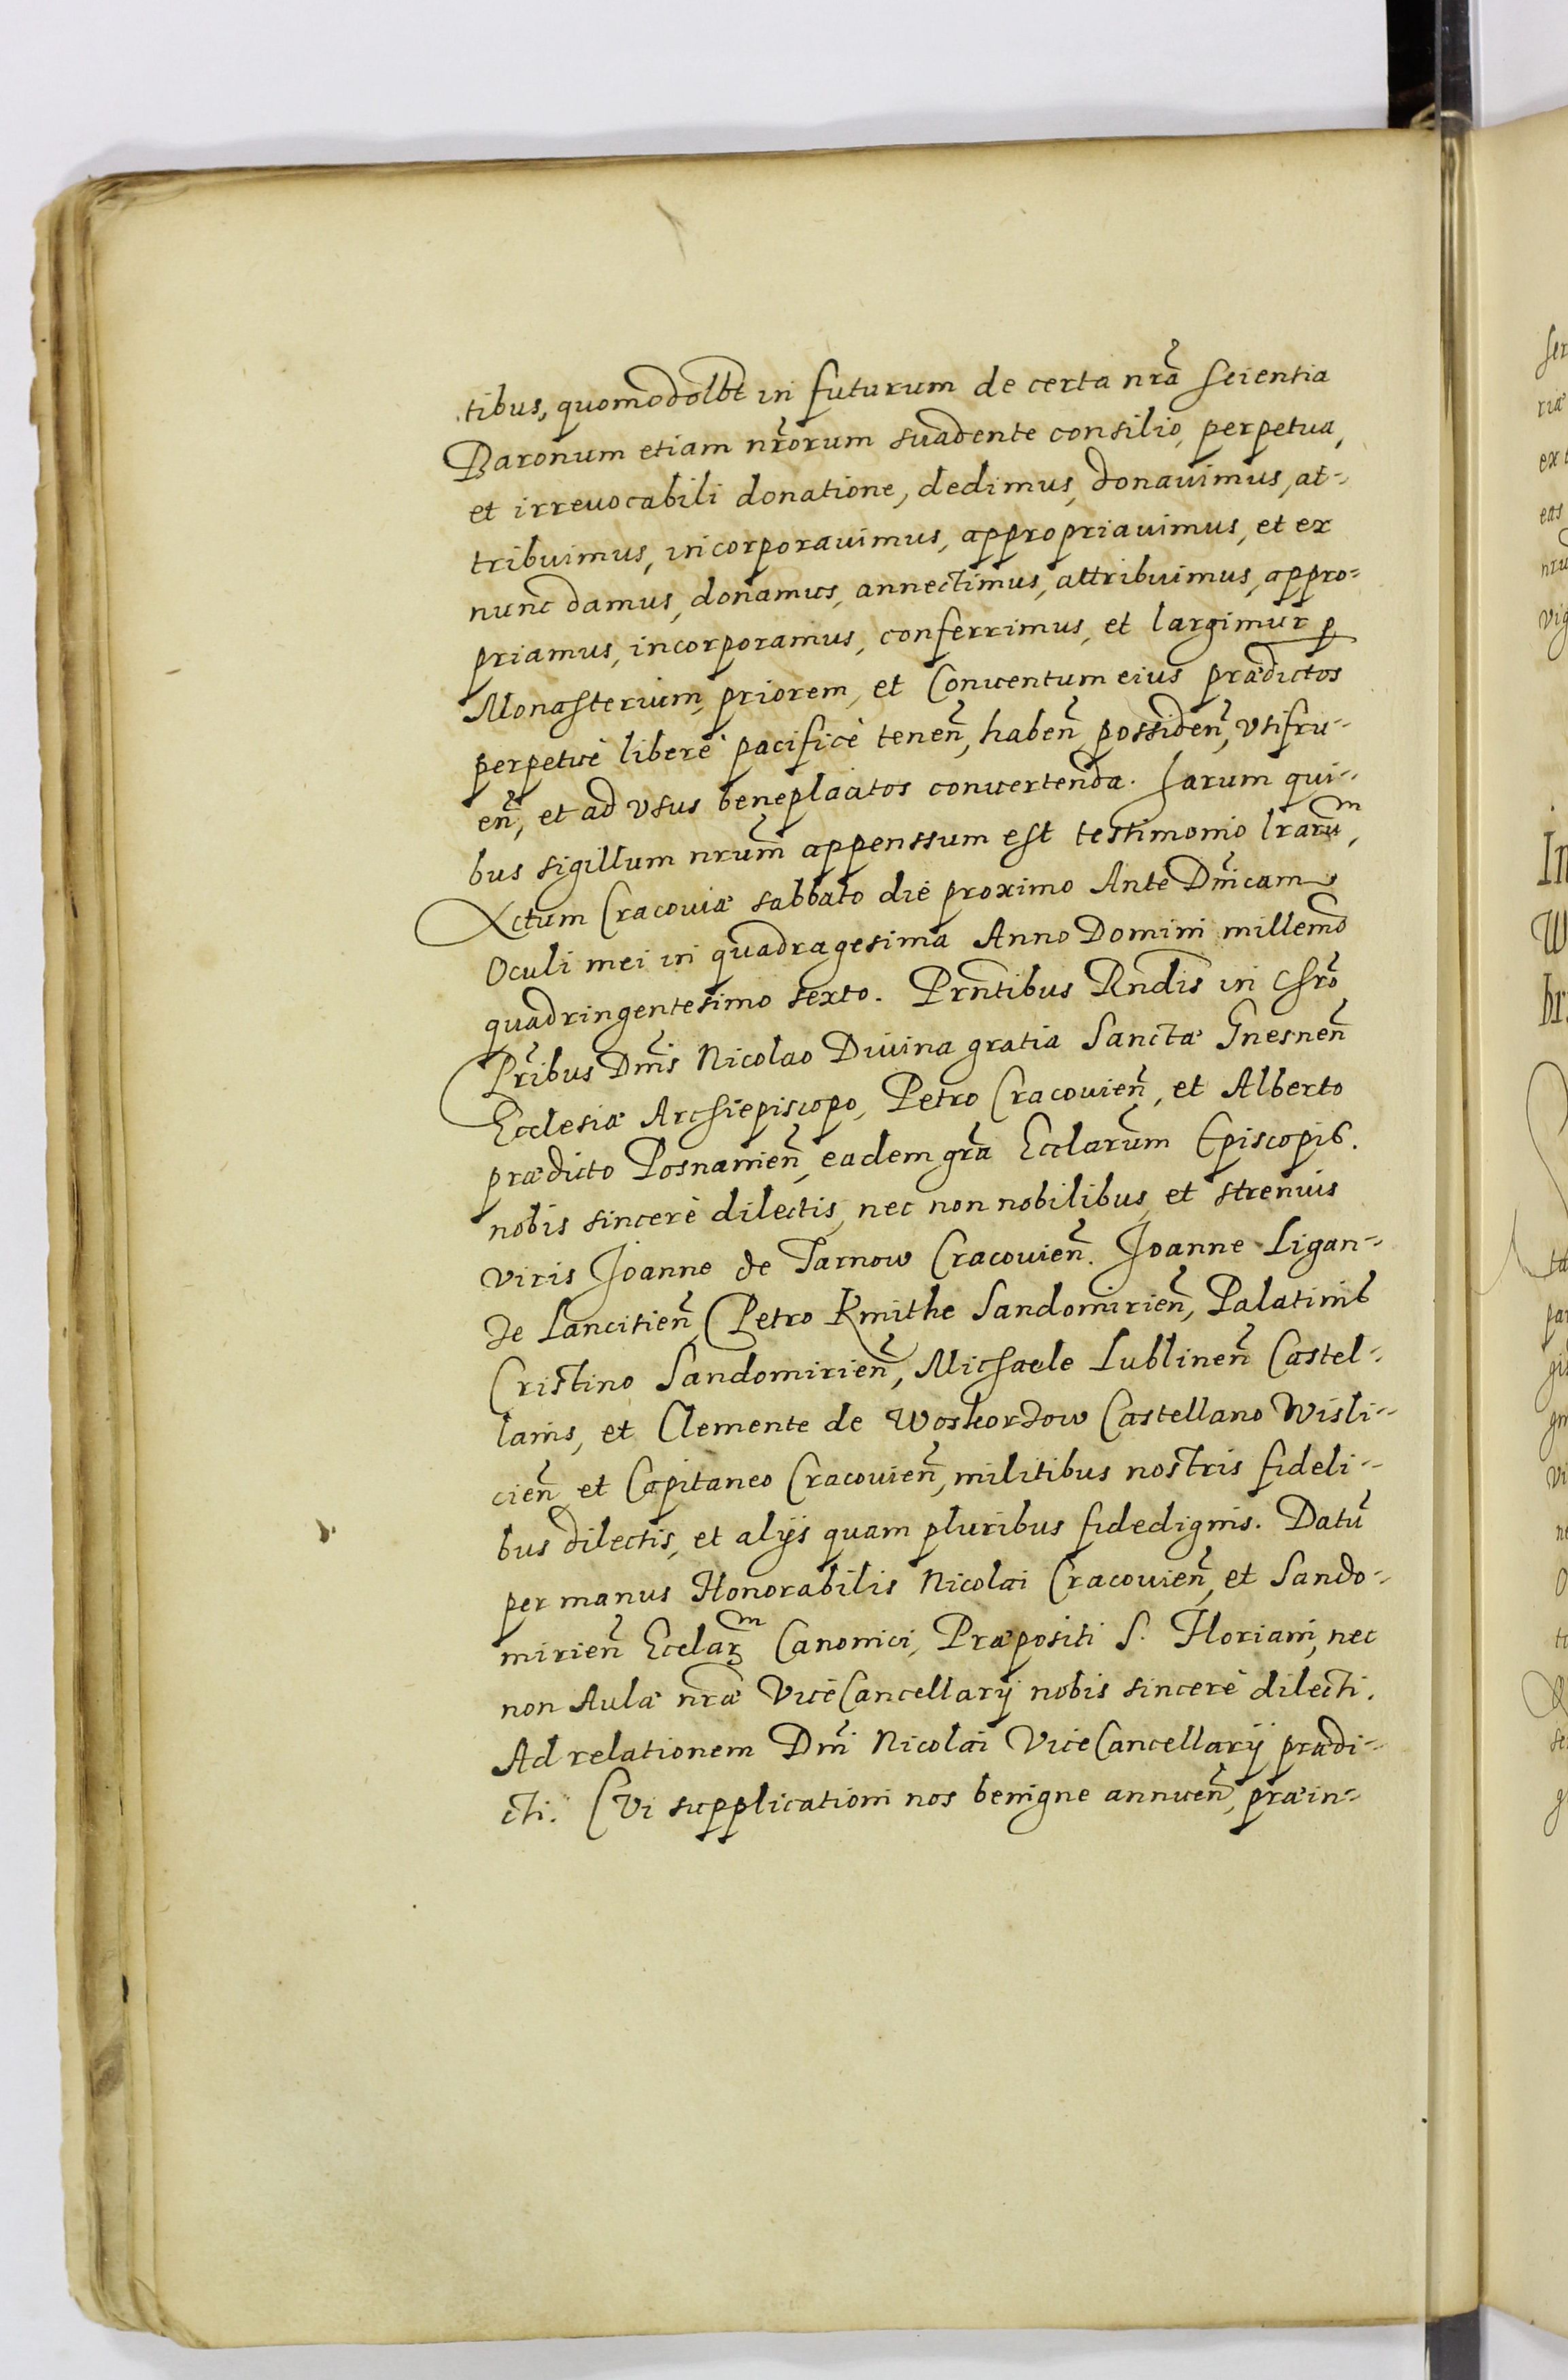 tibus, quomodolbt in futurum de certa nrã scientia
Baronum etiam nrõrum suadente consilio, perpetua,
et irreuocabili donatione, dedimus, donauimus, at=
tribuimus, incorporauimus, appropriauimus, et ex
nunc damus, donamus, annectimus, attribuimus, appro=
priamus, incorporamus, conferrimus, et largimur p
Monasterium, priorem, et Conuentum eius prædictos
perpetuè liberè pacificè teneñ, habeñ possideñ, vtifru=
eñ, et ad vsus beneplacitos conuertenda. Harum qui=
bus sigillum nrũm appenssum est testimonio lrarum,
Actum Cracouiæ sabbato die proximo Ante Dnĩcam
Oculi mei in quadragesima Anno Domini millemo
quadringentesimo sexto. Prñtibus Rñdis in Chrõ
Prĩbus Dnĩs Nicolao Diuina gratia Sanctæ Gnesneñ
Ecclesiæ Archiepiscopo, Petro Cracouieñ, et Alberto
prædicto Posnanieñ, eadem grã Ecclarum Episcopis.
nobis sincerè dilectis, nec non nobilibus, et strenuis
viris Joanne de Tarnow Cracouieñ. Joanne Ligan=
de Lancitieñ, Petro Kmithe Sandomirieñ, Palatinis
Cristino Sandomirieñ, Michaele Lublineñ Castel=
lanis, et Clemente de Woskordow Castellano Wisli=
cieñ et Capitaneo Cracouieñ, militibus nostris fideli=
bus dilectis, et alijs quam pluribus fidedignis. Datũ
per manus Honorabilis Nicolai Cracouieñ, et Sando=
mirieñ Ecclarm Canonici, Præpositi S. Floriani, nec
non Aulæ nræ ViceCancellarij nobis sincerè dilecti.
Ad relationem Dnĩ Nicolai ViceCancellarij prædi=
cti. CVi supplicationi nos benigne annueñ, præin=